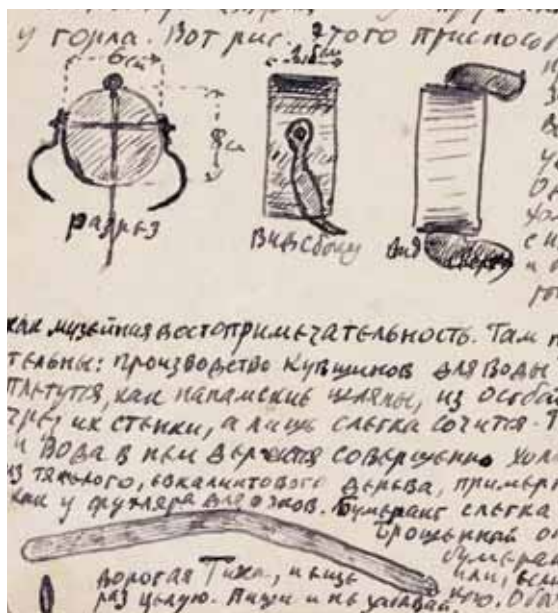 у горла. Вот рис. этого приспосо
6см
8см
разрез
Вид сбоку
Вид сверху
как музейная достопримечательность. Там
тельны: производство кувшинов для воды
плетутся, как панамские шляпы, из особой
чрез их стенки, а лишь слегка сочится. Т
и вода в нем держится совершенно холо
из тяжелого, эвкалиптового дерева, примерн
как у футляра для очков. Бумеранг слегка
Брошенный
бумеран
или, если
дорогая и еще
раз целую. Пиши и не забывай